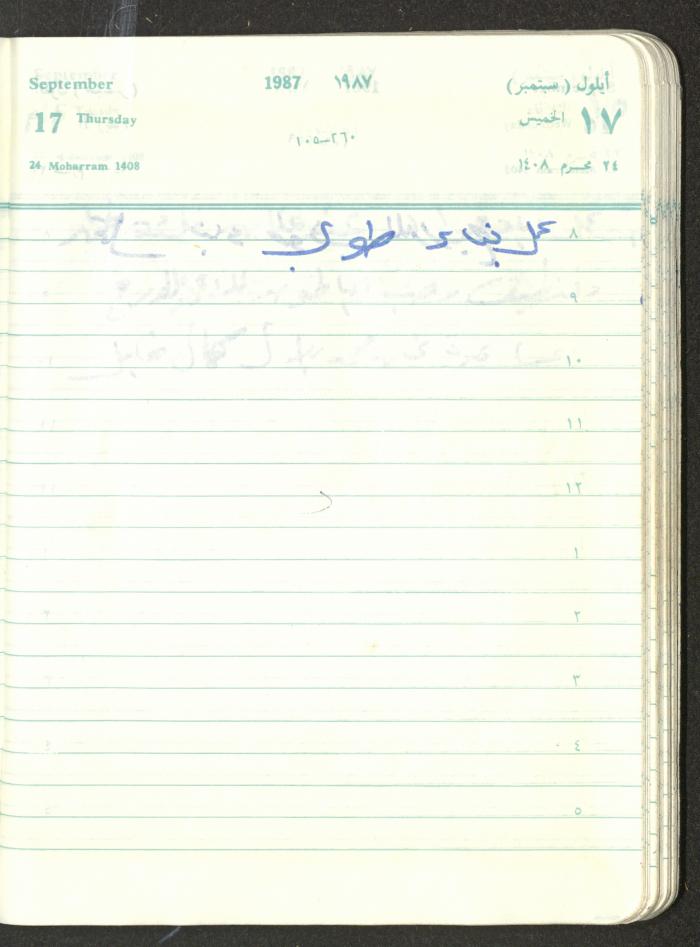 September 1987 ١٩٨٧ أيلول (سبتمبر)
17 Thursday الخميس ١٧
٢٦٠-١٠٥
24 Moharram 1408 ٢٤ محرم ١٤٠٨
٨ عمل بناء طوب
٩
١٠
١١
١٢
١
٢
٣
٤
٥